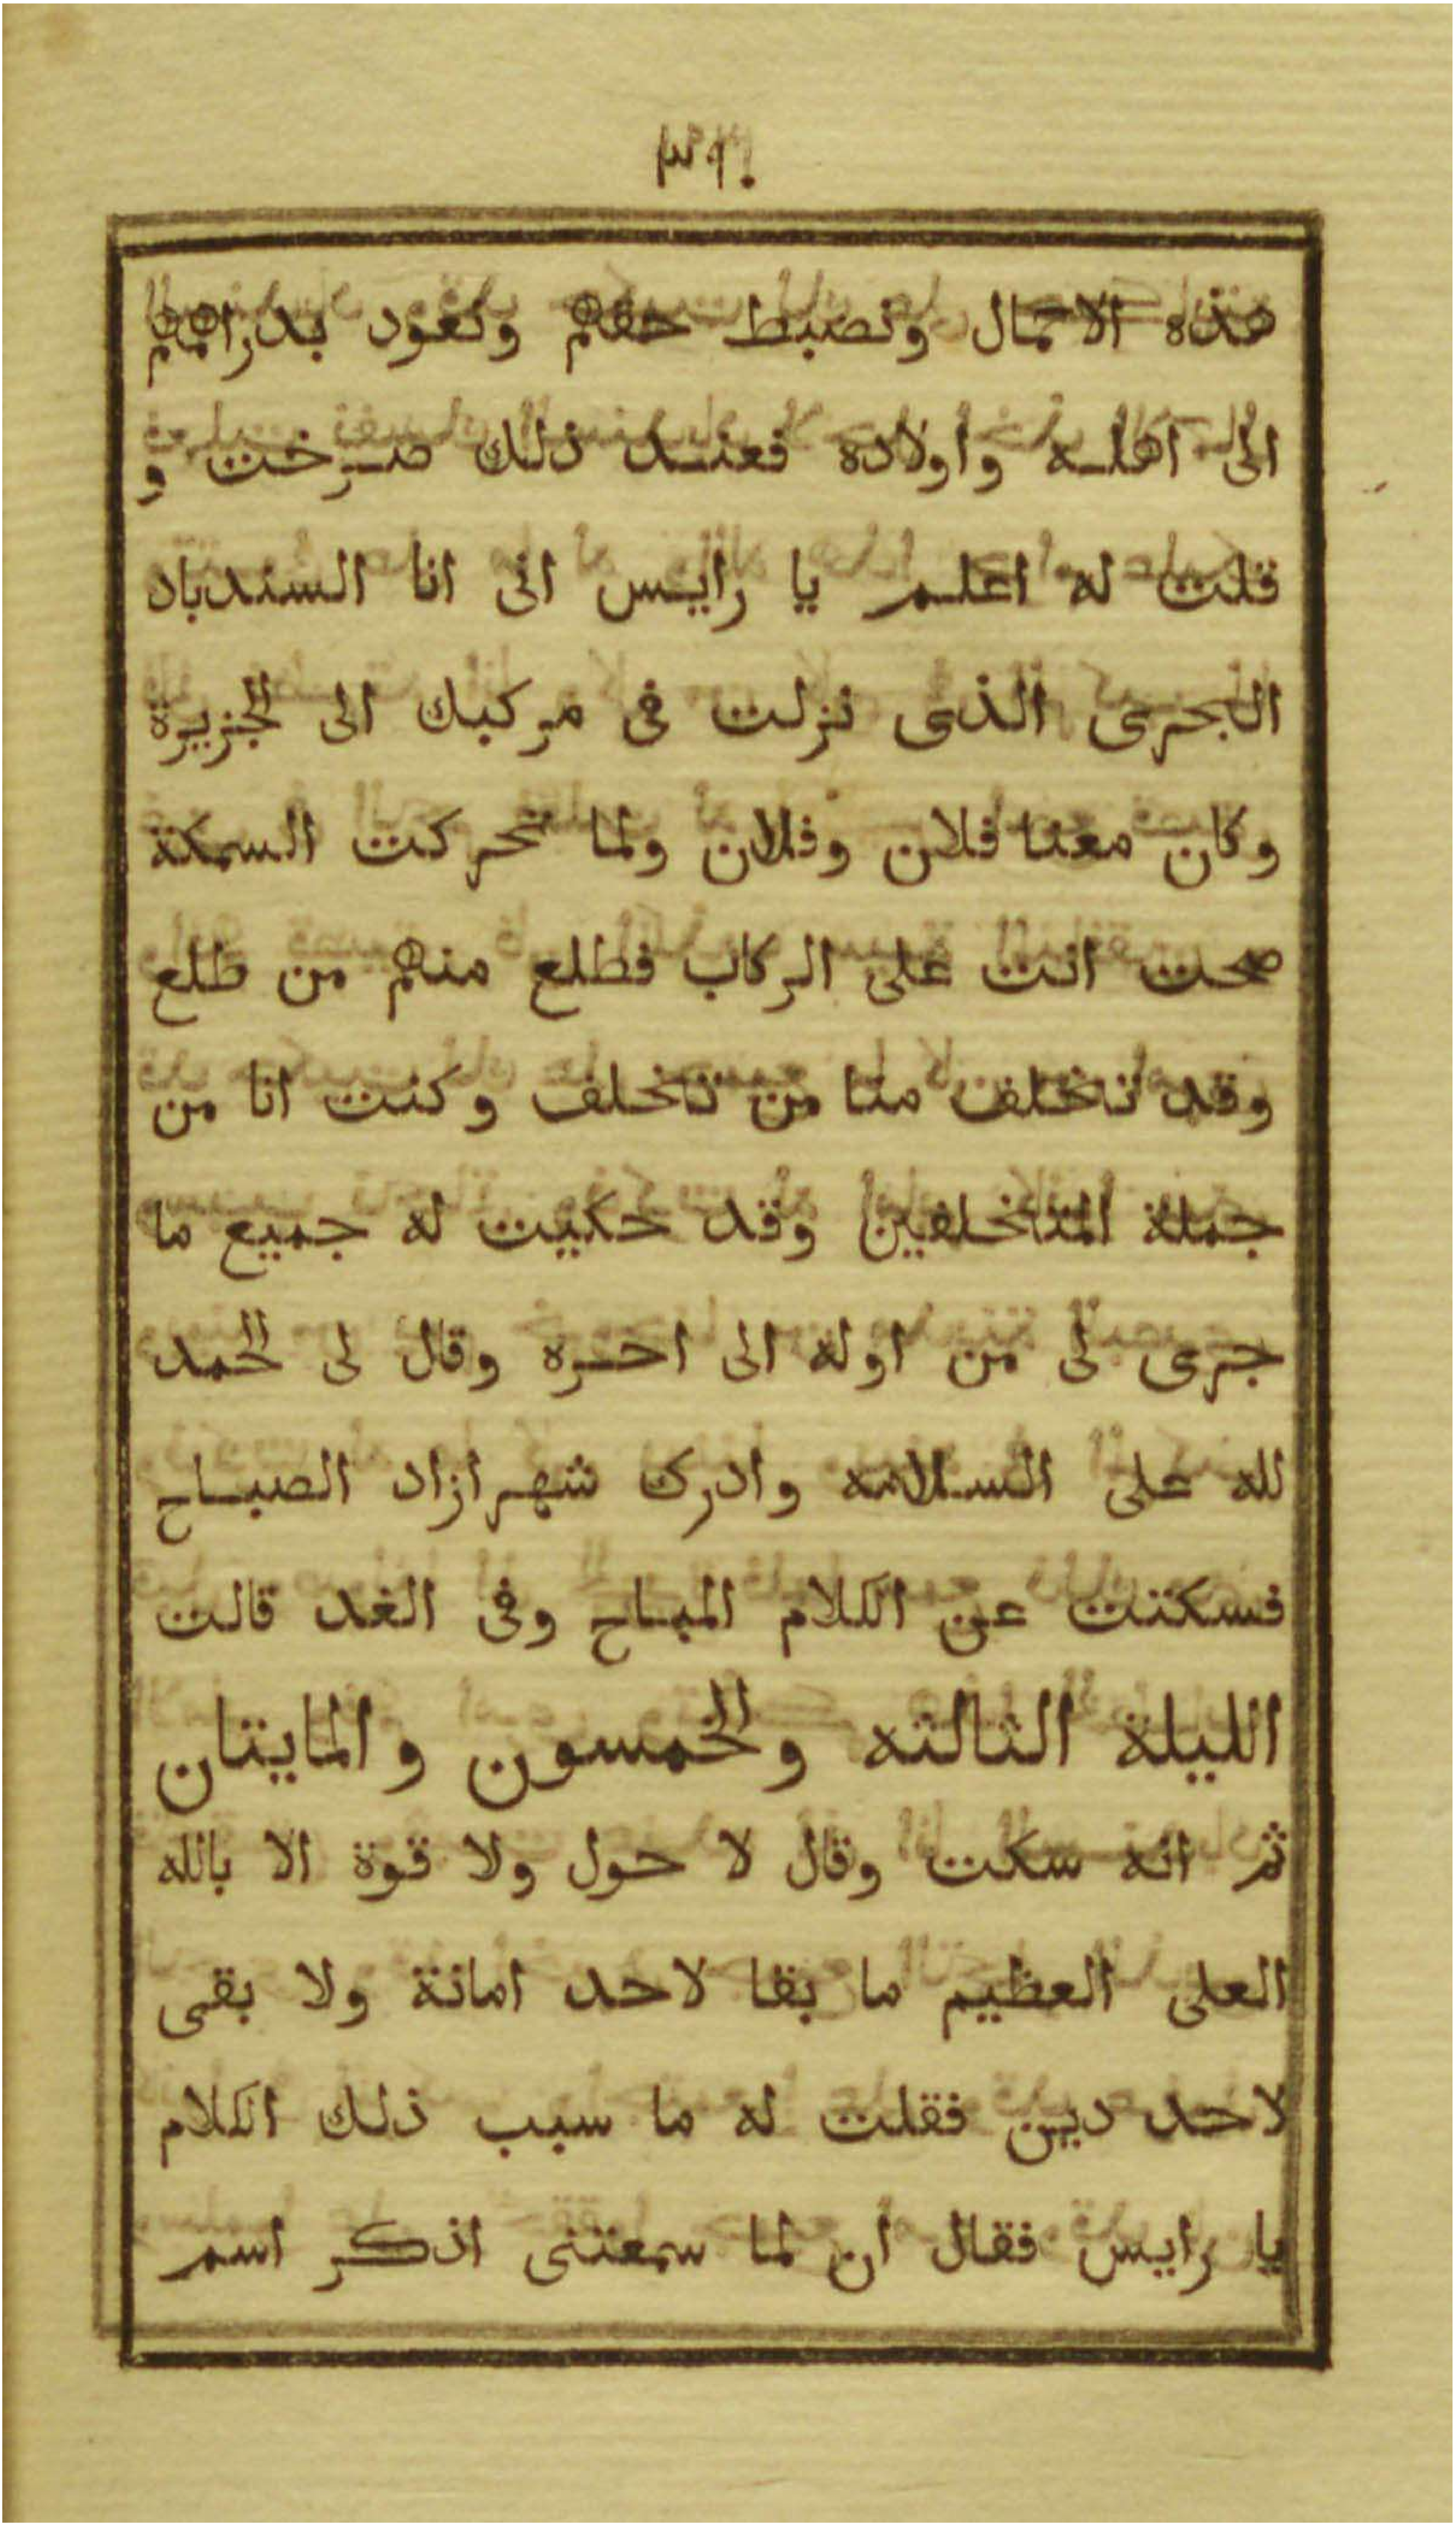 هذه الاحمال ونضبط حقهم ونعود بدراهمهم
الى اهله واولاده فعند ذلك صرخت و
قلت له اعلم يا رايس انى انا السندباد
البحرى الذى نزلت فى مركبك الى الجزيرة
وكان معنا فلان وفلان ولما تحركت السمكة
صحت انت على الركاب فطلع منهم من طلع
وقد تخلف منا من تخلف وكنت انا من
جملة المتخلفين وقد حكيت له جميع ما
جرى لى من اوله الى احره وقال لى الحمد
لله على السلامه وادرك شهرازاد الصباح
فسكتت عن الكلام المباح وفى الغد قالت
الليلة الثالثه والخمسون والمايتان
ثم انه سكت وقال لا حول ولا قوة الا بالله
العلى العظيم ما بقا لاحد امانة ولا بقى
لاحد دين فقلت له ما سبب ذلك الكلام
يا رايس فقال ان لما سمعتنى اذكر اسم